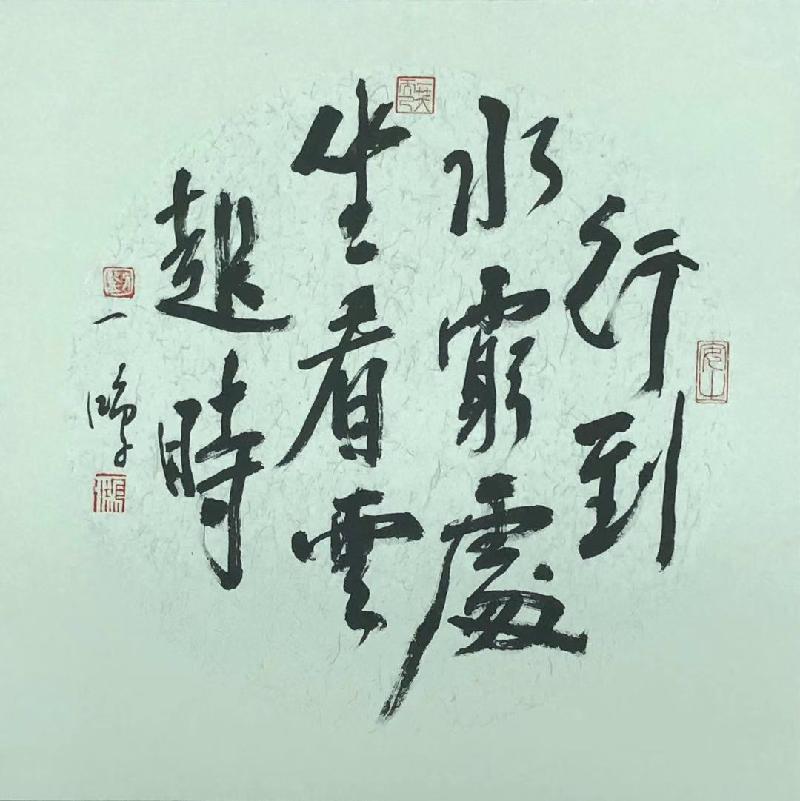 行到
水窮處
坐看雲
起時
一鴻